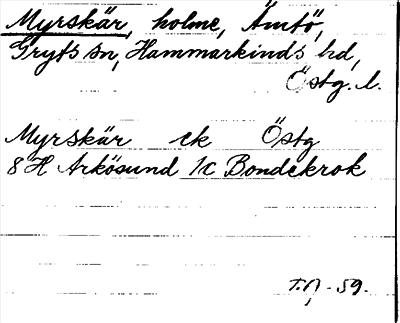 Myrskär, holme, Ämtö,
Gryts sn, Hammarkinds hd,
Östg. l.
Myrskär ek Östg
8 H Arkösund 1c Bondekrok
-59.